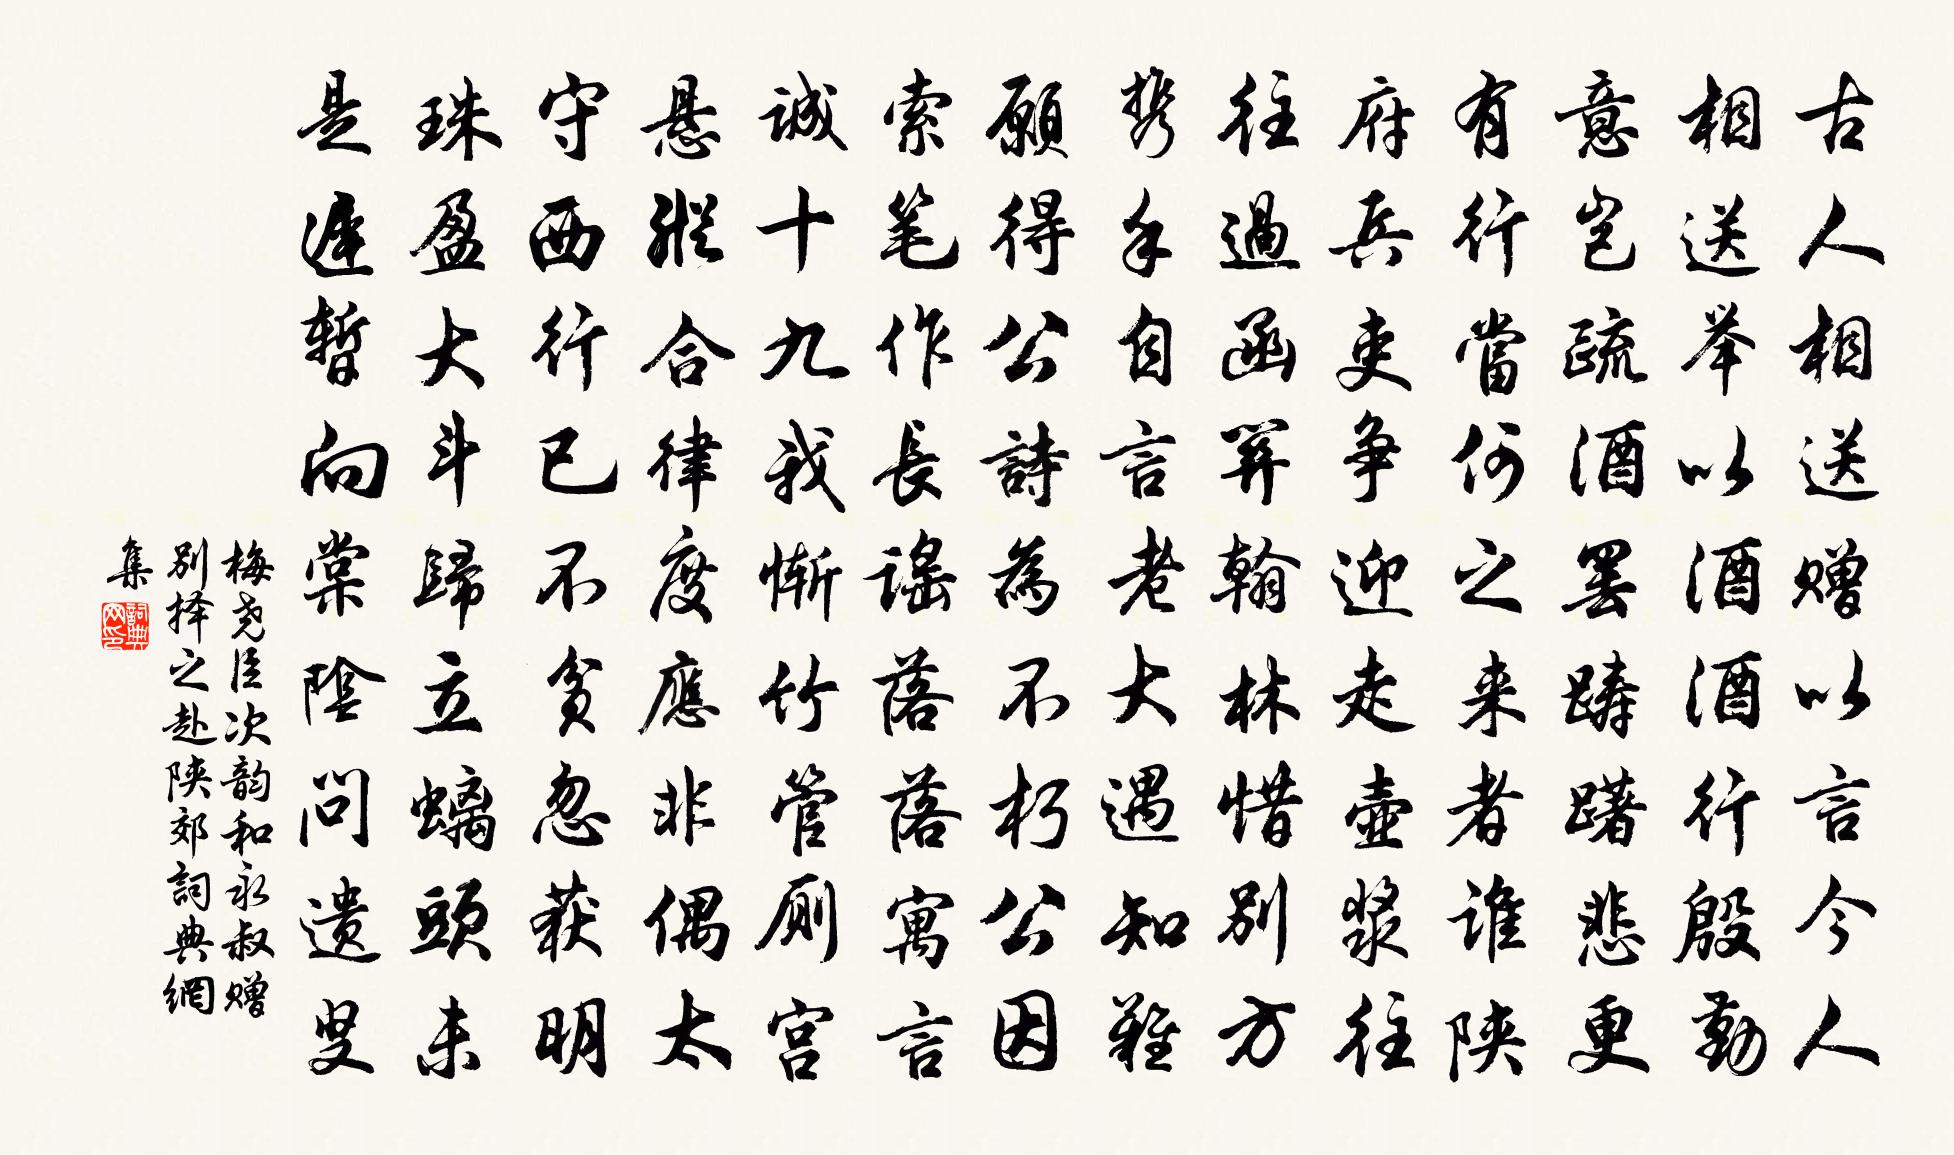 古人相送赠以言今人
相送举以酒酒行殷勤
意岂疏酒罢踌躇悲更
有行當何之来者谁陕
府兵吏争迎走壶浆往
往過函关翰林惜别方
携手自言老大遇知難
願得公詩為不朽公因
索笔作長謠落落寓言
诚十九我惭竹管厕宫
悬縱合律度應非偶太
守西行已不贫忽获明
珠盈大斗歸立螭頭未
是遲暫向棠陰問遗叟
梅尧臣次韵和永叔赠
别择之赴陕郊詞典網
集
詞典网印